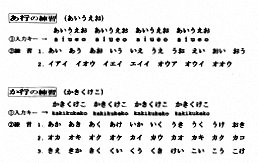 あ行の練習 (あいうえお)
あいうえお あいうえお あいうえお あいうえお
①入力キー → aiueo aiueo aiueo aiueo
②練習 1. あい あう あお いう いえ うえ うお えい おい おう
2. イアイ イオウ イエイ エイイ オウア オウイ オオウ
か行の練習 (かきくけこ)
かきくけこ かきくけこ かきくけこ かきくけこ
①入力キー → kakikukeko kakikukeko kakikukeko kakikukeko
②練習 1. あか あき あく あけ いか いく うき うく うけ おき
2. オカ オキ オク オケ カイ カウ カオ カキ カク カコ
3. きえ きか きく くい くう くき けい こい こう こけ